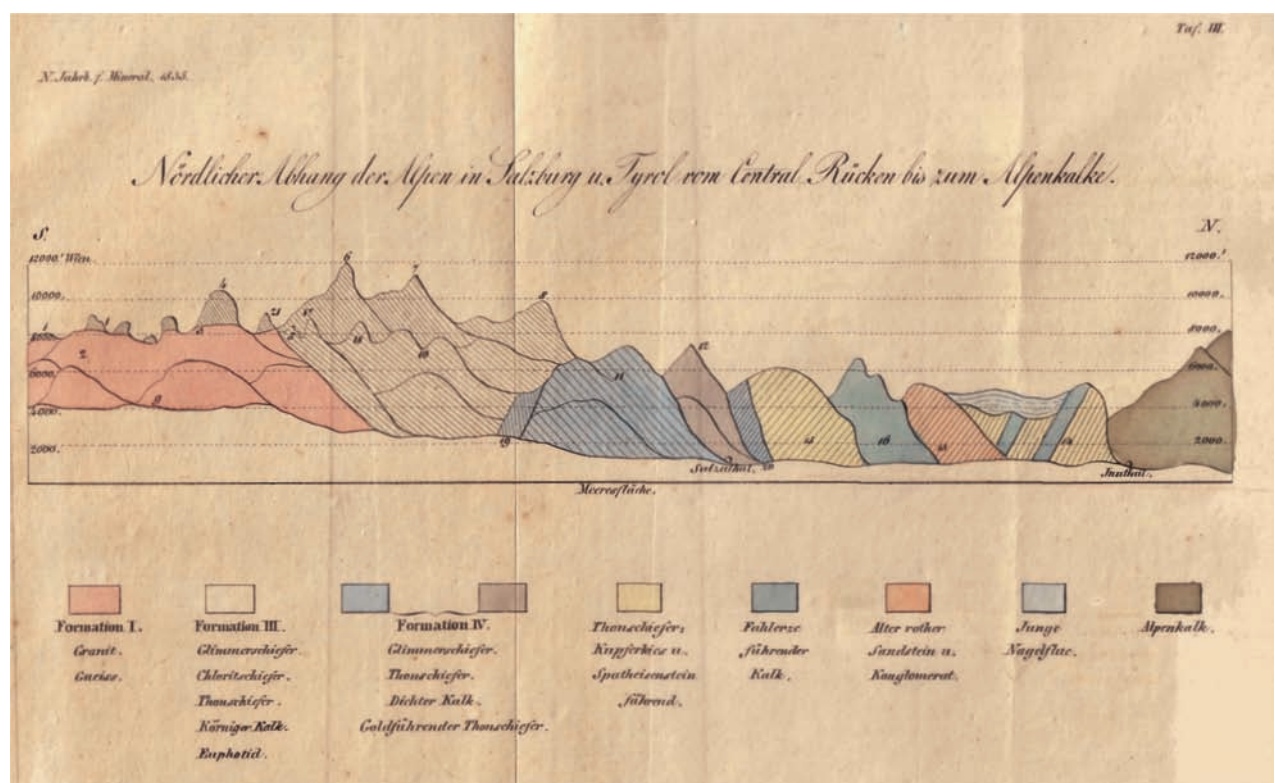 Taf. III.
N. Jahrb. f. Mineral. 1835.
Nördlicher Abhang der Alpen in Salzburg u. Tyrol vom Central Rücken bis zum Alpenkalke.
S. N.
12000.' Wien. 12000.'
10000. 10000.
8000. 8000.
6000. 6000.
4000. 4000.
2000. 2000.
6
7
4
8
17
2
10
11
12
9
15
16
13
14
Salzathal. Innthal.
Meeresfläche.
Formation I.
Granit.
Gneiss.
Formation III.
Glimmerschiefer.
Chloritschiefer.
Thonschiefer.
Körniger Kalk.
Euphotid.
Formation IV.
Glimmerschiefer.
Thonschiefer.
Dichter Kalk.
Goldführender Thonschiefer.
Thonschiefer,
Kupferkies u.
Spatheisenstein
führend.
Fahlerze
führender
Kalk.
Alter rother
Sandstein u.
Konglomerat.
Junge
Nagelflue.
Alpenkalk.